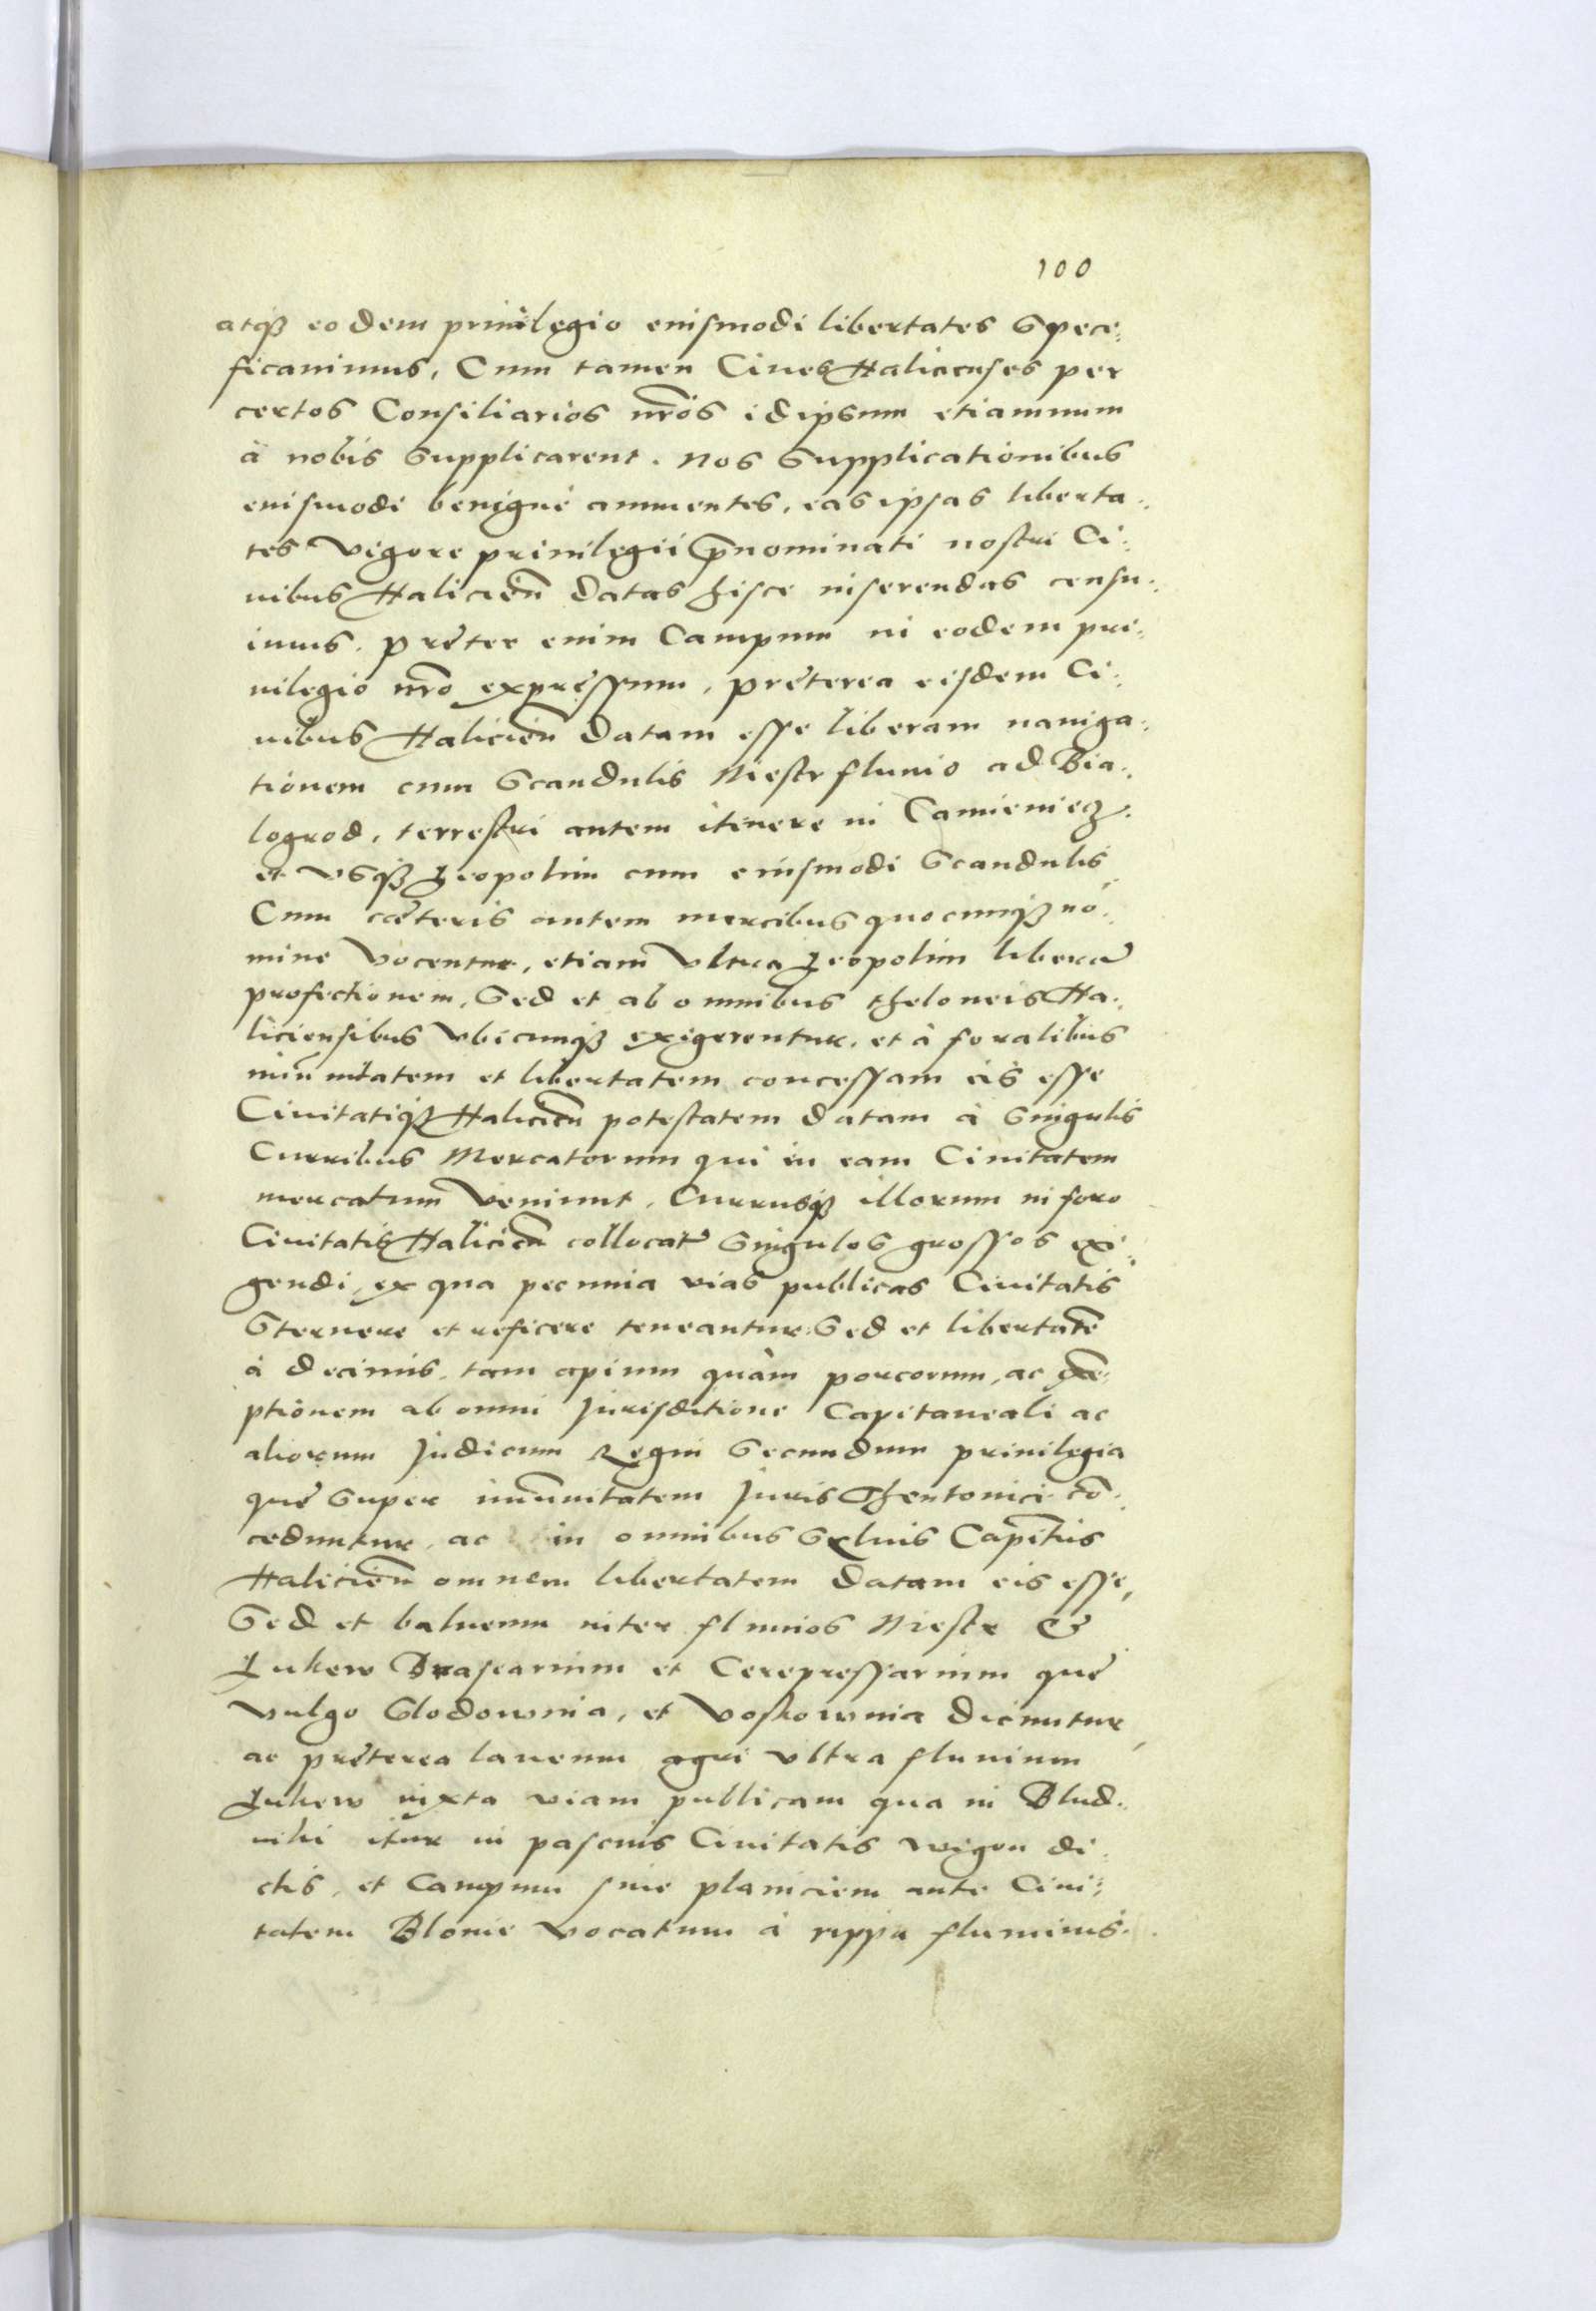 100
atq3 eodem priuilegio eiusmodi libertates Spece:
ficauimus, Cum tamen Ciues Halicienses per
certos Consiliarios nr̃os idipsum etiamnum
à nobis supplicarent. Nos supplicationibus
eiusmodi benignè annuentes, eas ipsas liberta:
tes vigore priuilegii prẽnominati nostri Ci:
uibus Halicieñ datas hisce inserendas censu:
imus. Prẹter enim Campum in eodem pri:
uilegio nr̃o expressum, prẹterea eisdem Ci:
uibus Halicieñ datam esse liberam nauiga:
tionem cum Scandulis Niestr fluuio ad Bia:
logrod, terrestri autem itinere in Camieniecz.
et vsq3 Leopolim cum eiusmodi Scandulis
Cum cẹteris autem mercibus quocunq3 no:
mine vocentur, etiam vltra Leopolim liberã
profectionem, Sed et ab omnibus theloneis Ha:
liciensibus vbicunq3 exigerentur, et à foralibus
im̃unitatem et libertatem concessam eis esse
Ciuitatiq3 Halicieñ potestatem datam à singulis
Curribus Mercatorum qui in eam Ciuitatem
mercatum veniunt, Currusq3 illorum in foro
Ciuitatis Halicieñ collocañt singulos grossos exi:
gendi, ex qua pecunia vias publicas Ciuitatis
Sternere et reficere teneantur. Sed et libertatẽ
à decimis, tam apium quàm porcorum, ac exẽ:
ptionem ab omni Jurisditione Capitaneali ac
aliorum Judicum Regni Secundum priuilegia
quẹ super im̃unitatem Juris Theutonici cõ:
ceduntur, ac in omnibus Syluis Capitñis
Halicieñ omnem libertatem datam eis esse,
Sed et balneum inter fluuios Niestr &
Lukew Braseatrium et Cerepressarium quẹ
vulgo Slodownia, et Voskownia dicuntur,
ac prẹterea laneum agri vltra fluuium
Lukew iuxta viam publicam qua in Blud:
niki itur in pascuis Ciuitatis wigon di:
ctis, et Campum siue planiciem ante Ciui:
tatem Blonie vocatum à rippa fluminis.